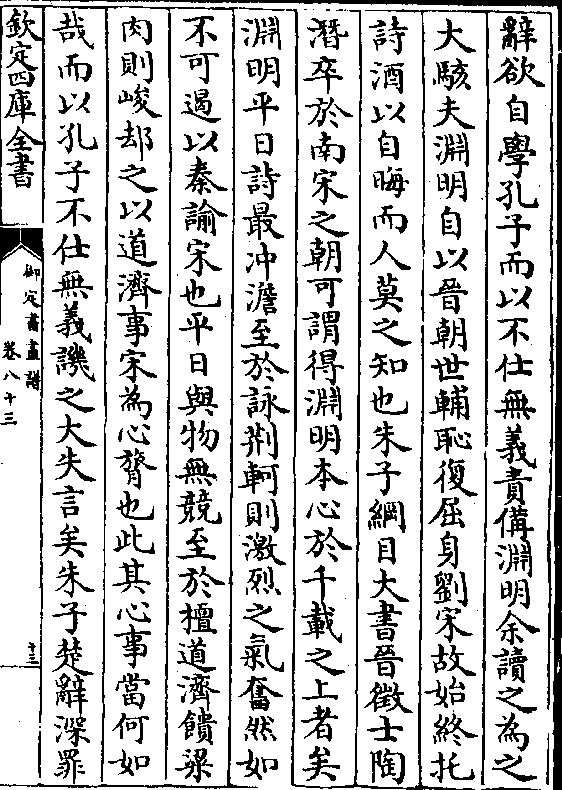 辭欲自學孔子而以不仕無義責備淵明余讀之為之
大駭夫淵明自以晉朝世輔恥復屈身劉宋故始終托
詩酒以自晦而人莫之知也朱子綱目大書晉徵士陶
潛卒於南宋之朝可謂得淵明本心於千載之上者矣
淵明平日詩最冲澹至於詠荆軻則激烈之氣奮然如
不可遏以秦諭宋也平日與物無競至於檀道濟饋粱
肉則峻却之以道濟事宋為心膂也此其心事當何如
哉而以孔子不仕無義譏之大失言矣朱子楚辭深罪
欽定四庫全書
御定書畫譜
卷八十三
十三